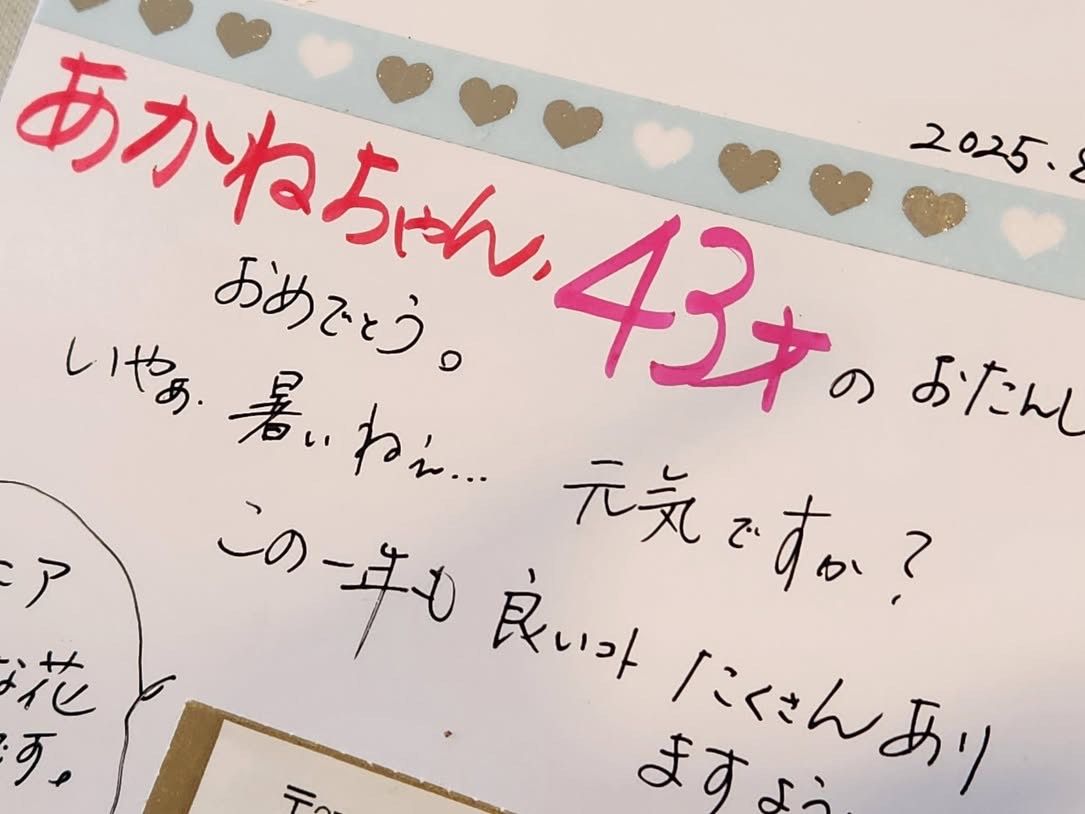 2025.8
あかねちゃん、43才の おたんし
おめでとう。
いやぁ、暑いねぇ… 元気ですか?
この一年も 良いコト たくさんあり
ますよう
ニア
な花
です。
〒